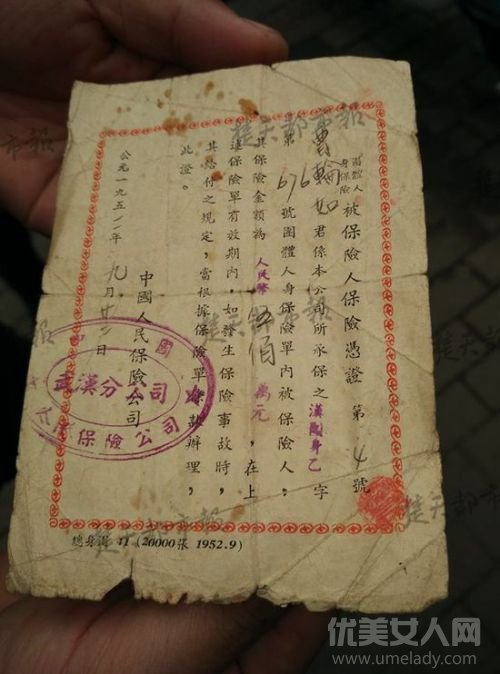 團體人身保險 被保險人保險憑證 第 4 號
輪如 君係本公司所承保之 漢團身乙 字
第 676 號團體人身保險單內被保險人,
其保險金額為 人民幣 伍佰 萬元 ,在上
述保險單有效期內,如發生保險事故時,
其給付之規定,當根據保險單條款辦理,
此證。
中國人民保險公司
公元一九五二年 九月 日
武漢分公司
保險公司
總身誤 11 (20000張 1952.9)
楚天都市報
楚天都市報
楚天都市報
楚天都市報
楚天都市報
市報
報
优美女人网
www.umelady.com